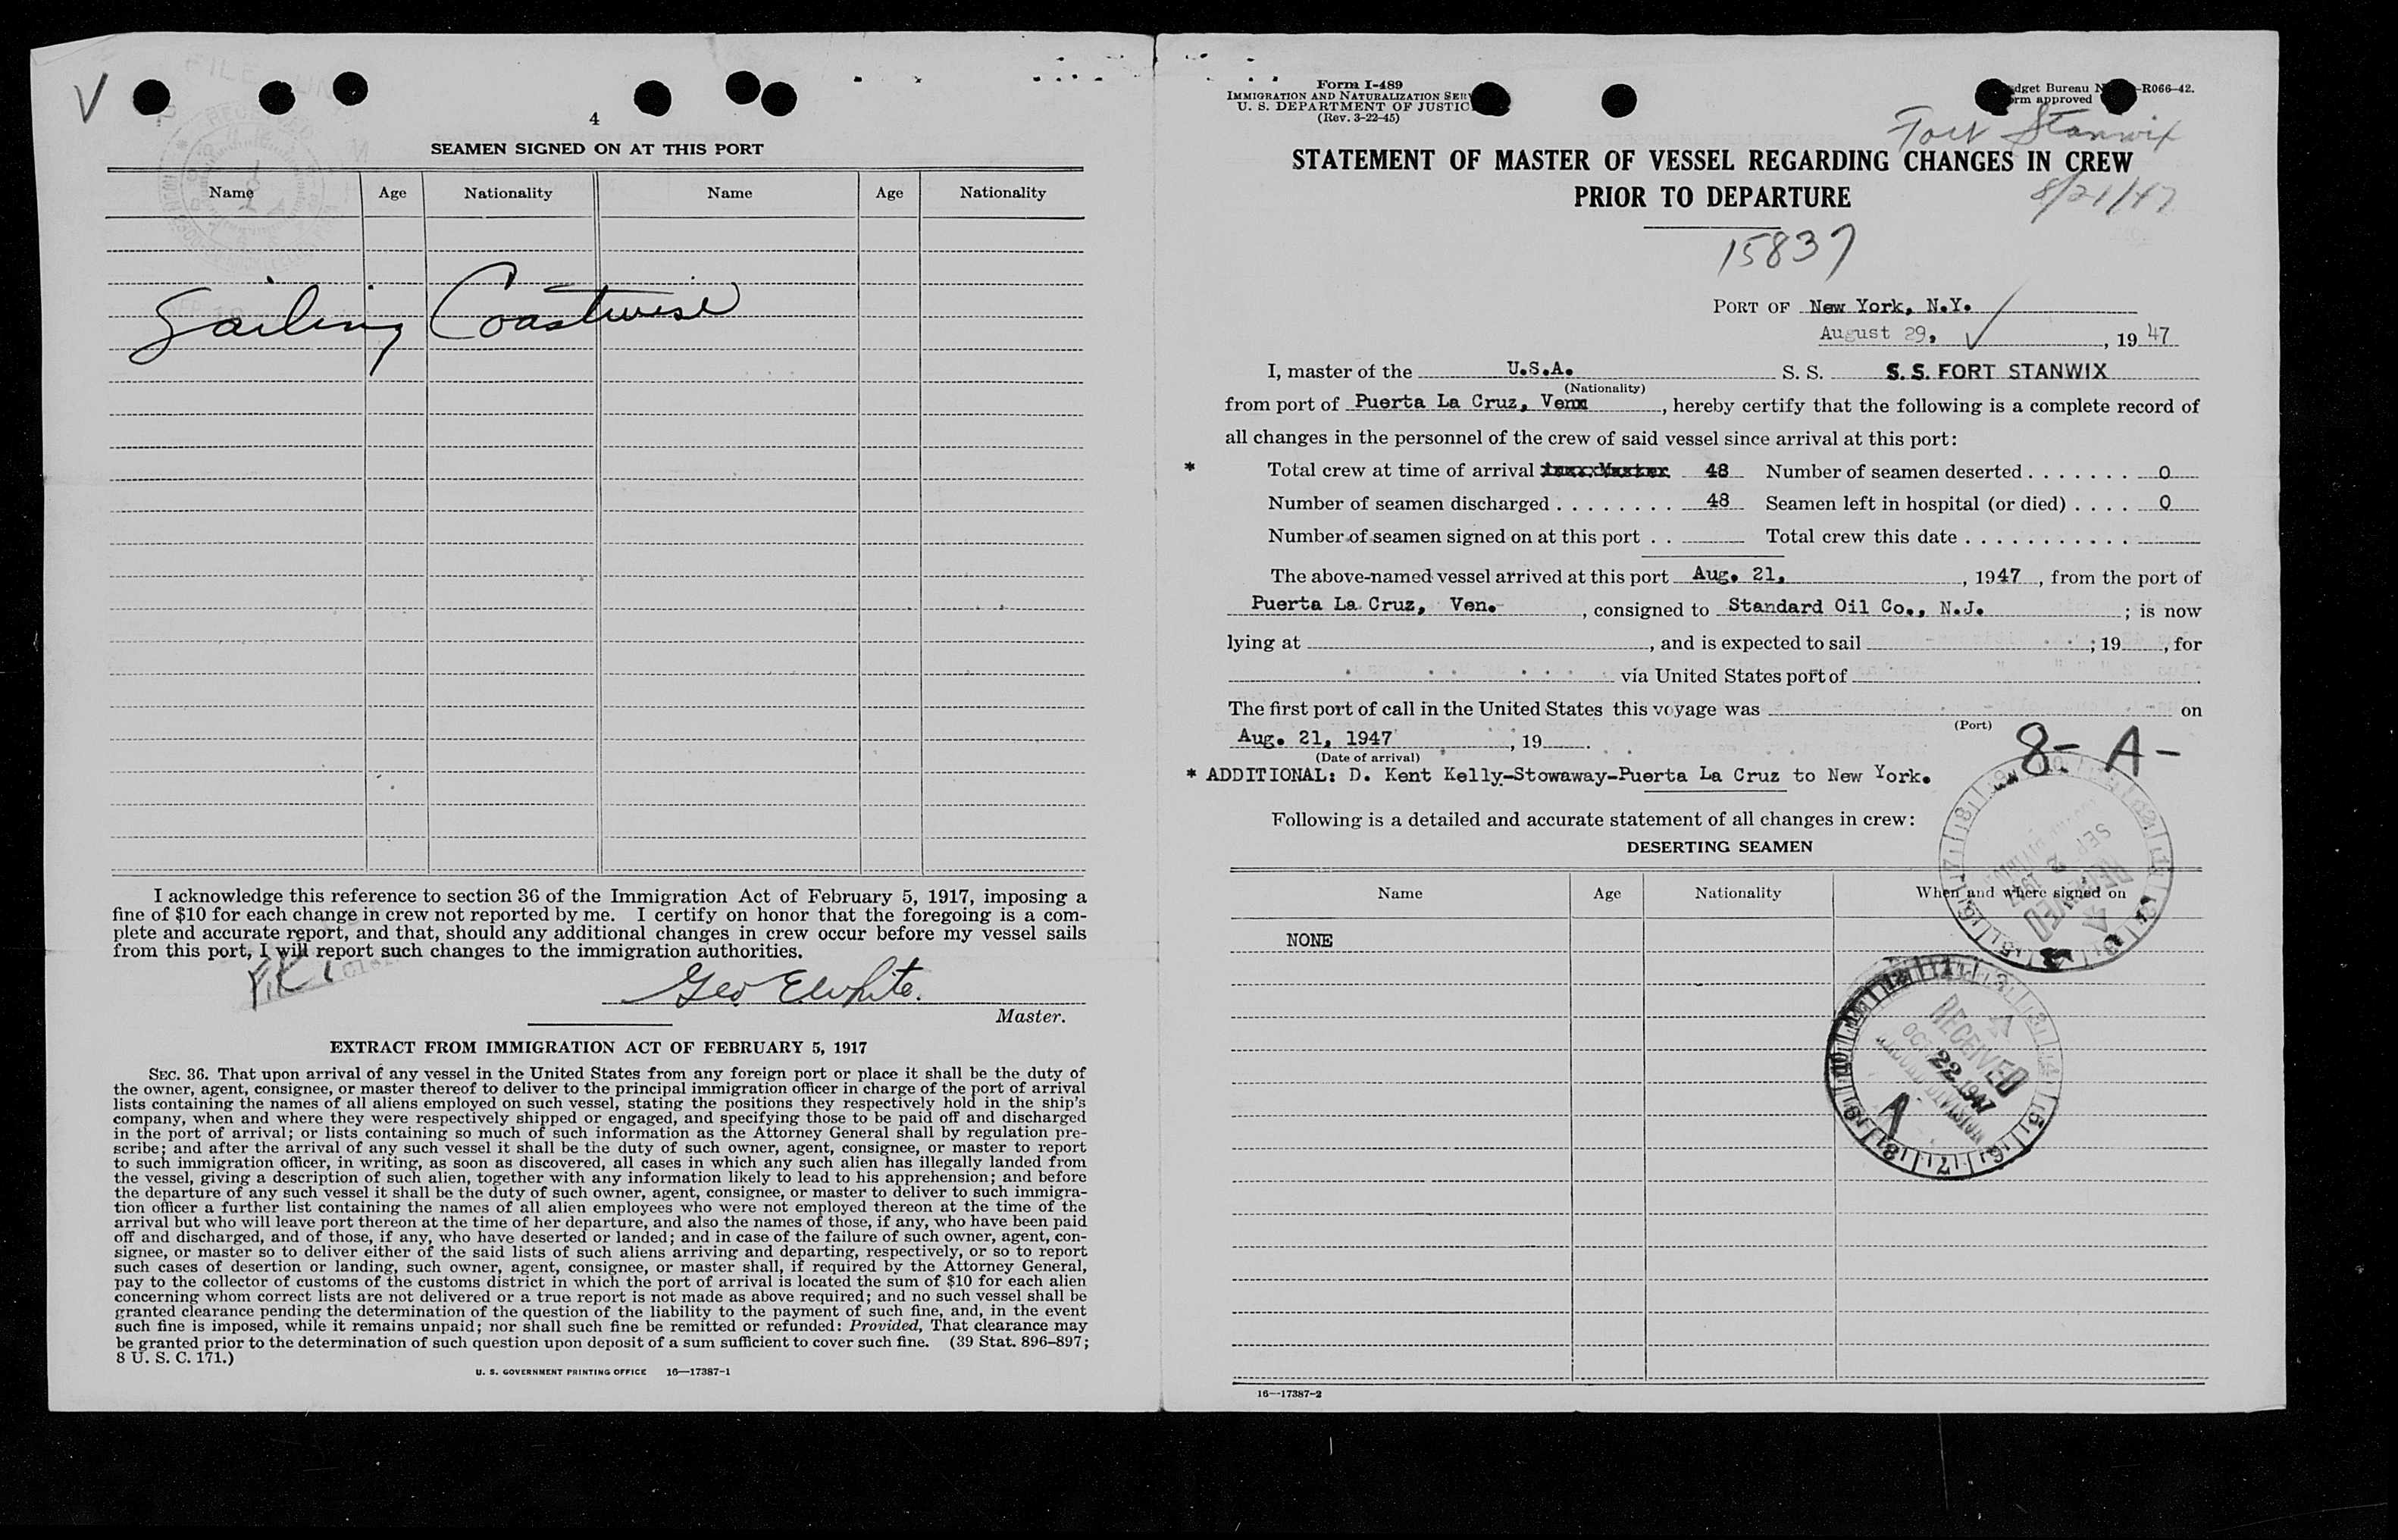 4
SEAMEN SIGNED ON AT THIS PORT
Name Age Nationality Name Age Nationality
Sailing Coastwise
I acknowledge this reference to section 36 of the Immigration Act of February 5, 1917, imposing a
fine of $10 for each change in crew not reported by me. I certify on honor that the foregoing is a com-
plete and accurate report, and that, should any additional changes in crew occur before my vessel sails
from this port, I will report such changes to the immigration authorities.
Geo E White.
Master.
EXTRACT FROM IMMIGRATION ACT OF FEBRUARY 5, 1917
SEC. 36. That upon arrival of any vessel in the United States from any foreign port or place it shall be the duty of
the owner, agent, consignee, or master thereof to deliver to the principal immigration officer in charge of the port of arrival
lists containing the names of all aliens employed on such vessel, stating the positions they respectively hold in the ship's
company, when and where they were respectively shipped or engaged, and specifying those to be paid off and discharged
in the port of arrival; or lists containing so much of such information as the Attorney General shall by regulation pre-
scribe; and after the arrival of any such vessel it shall be the duty of such owner, agent, consignee, or master to report
to such immigration officer, in writing, as soon as discovered, all cases in which any such alien has illegally landed from
the vessel, giving a description of such alien, together with any information likely to lead to his apprehension; and before
the departure of any such vessel it shall be the duty of such owner, agent, consignee, or master to deliver to such immigra-
tion officer a further list containing the names of all alien employees who were not employed thereon at the time of the
arrival but who will leave port thereon at the time of her departure, and also the names of those, if any, who have been paid
off and discharged, and of those, if any, who have deserted or landed; and in case of the failure of such owner, agent, con-
signee, or master so to deliver either of the said lists of such aliens arriving and departing, respectively, or so to report
such cases of desertion or landing, such owner, agent, consignee, or master shall, if required by the Attorney General,
pay to the collector of customs of the customs district in which the port of arrival is located the sum of $10 for each alien
concerning whom correct lists are not delivered or a true report is not made as above required; and no such vessel shall be
granted clearance pending the determination of the question of the liability to the payment of such fine, and, in the event
such fine is imposed, while it remains unpaid; nor shall such fine be remitted or refunded: Provided, That clearance may
be granted prior to the determination of such question upon deposit of a sum sufficient to cover such fine. (39 Stat. 896–897;
8 U. S. C. 171.)
U. S. GOVERNMENT PRINTING OFFICE 16—17387-1
Form I-489
IMMIGRATION AND NATURALIZATION SER
U. S. DEPARTMENT OF JUSTIC
(Rev. 3-22-45)
dget Bureau N -R066-42.
rm approved
Fort Stanwix
STATEMENT OF MASTER OF VESSEL REGARDING CHANGES IN CREW
PRIOR TO DEPARTURE
8/21/47
15837
PORT OF New York, N.Y.
August 29, , 19 47
I, master of the U.S.A. S. S. S. S. FORT STANWIX
(Nationality)
from port of Puerta La Cruz, Ven , hereby certify that the following is a complete record of
all changes in the personnel of the crew of said vessel since arrival at this port:
* Total crew at time of arrival 48 Number of seamen deserted . . . . . . . 0
Number of seamen discharged . . . . . . . . 48 Seamen left in hospital (or died) . . . . 0
Number of seamen signed on at this port . . Total crew this date . . . . . . . . . . .
The above-named vessel arrived at this port Aug. 21, , 1947 , from the port of
Puerta La Cruz, Ven. , consigned to Standard Oil Co., N.J. ; is now
lying at , and is expected to sail ; 19 , for
via United States port of .
The first port of call in the United States this voyage was on
(Port)
Aug. 21, 1947 , 19 .
(Date of arrival)
8- A-
* ADDITIONAL: D. Kent Kelly-Stowaway-Puerta La Cruz to New York.
Following is a detailed and accurate statement of all changes in crew:
DESERTING SEAMEN
Name Age Nationality When and where signed on
RECEIVED
SEP 2 1947
NONE
RECEIVED
OCT 22 1947
16—17387-2